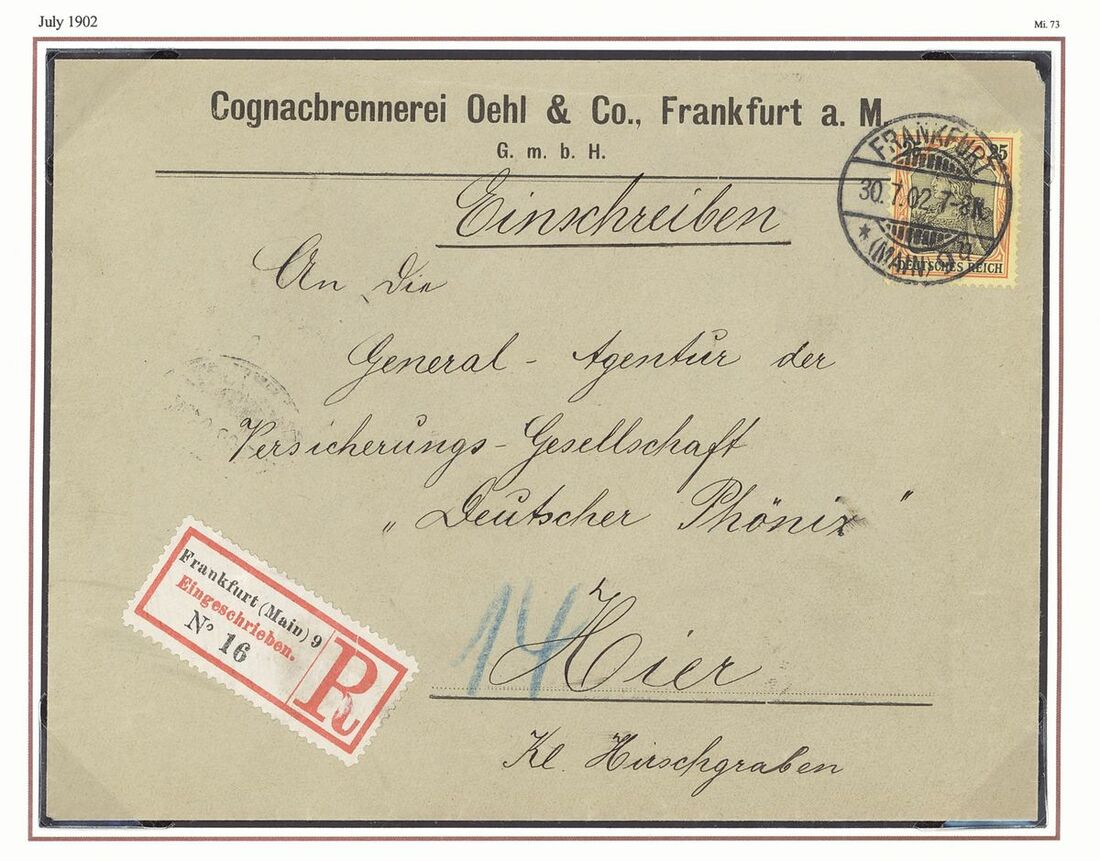 July 1902
Mi. 73
Cognacbrennerei Oehl & Co., Frankfurt a. M.
G. m. b. H.
FRANKFURT
30.7.02.7-8N.
* (MAIN) 9
25
DEUTSCHES REICH
Einschreiben
An die
General - Agentur der
Versicherungs - Gesellschaft
„Deutscher Phönix"
14
Hier
Kl. Hirschgraben
Frankfurt (Main) 9
Eingeschrieben.
No 16
R